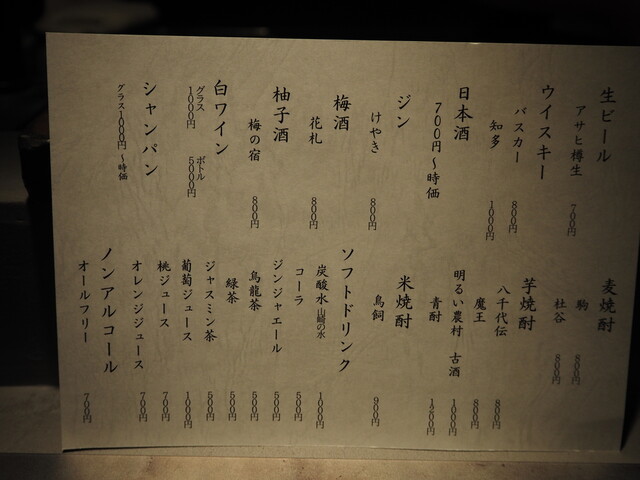 生ビール
アサヒ樽生 700円
ウイスキー
バスカー 800円
知多 1000円
日本酒
700円〜時価
ジン
けやき 800円
梅酒
花札 800円
柚子酒
梅の宿 800円
白ワイン
グラス1000円 ボトル5000円
シャンパン
グラス1000円〜時価
麦焼酎
駒 800円
杜谷 800円
芋焼酎
八千代伝 800円
魔王 800円
明るい農村 古酒 1000円
青酎 1200円
米焼酎
鳥飼 900円
ソフトドリンク
炭酸水 山崎の水 1000円
コーラ 500円
ジンジャエール 500円
烏龍茶 500円
緑茶 500円
ジャスミン茶 500円
葡萄ジュース 1000円
桃ジュース 700円
オレンジジュース 700円
ノンアルコール
オールフリー 700円